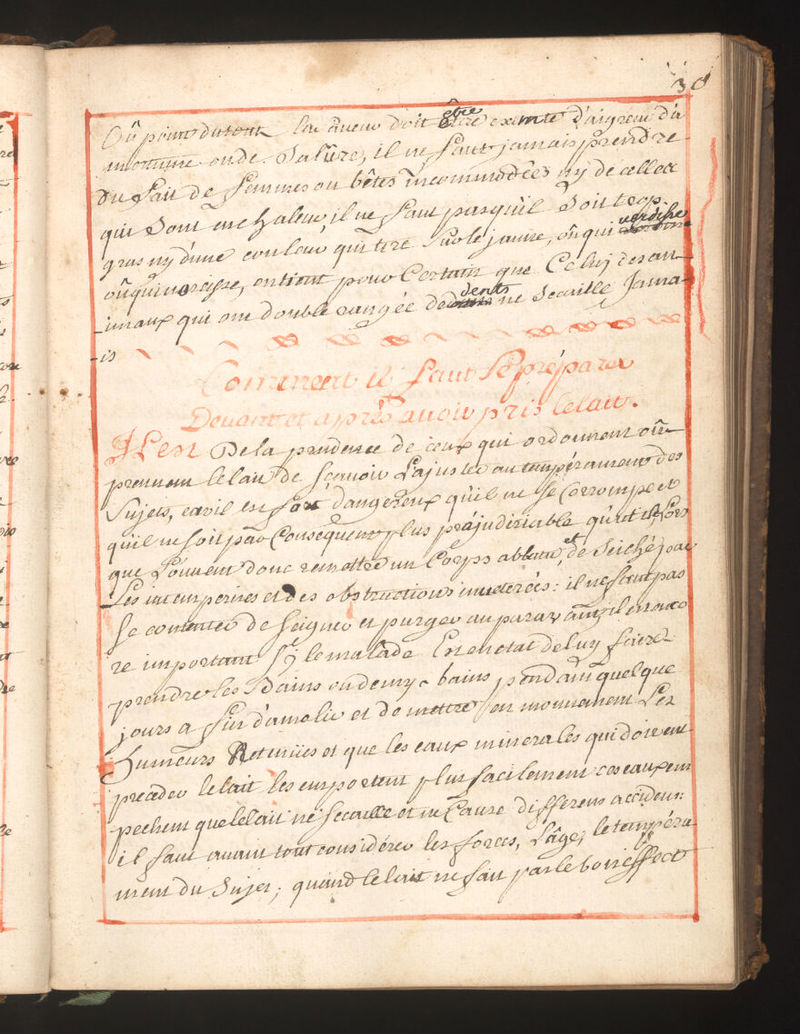 30
Où point du tout. Son aueur doit être exemte D'aigreur d'a
ou de Salûre, il ne faut jamais prendre
Du Lait de femmes ou bêtes incommodées ny de celles
qui Sont en chaleur, il ne faut pas qu'il Soit trop
gras ny d'une couleur qui tire Sur le jaune, où qui verdisse
où qui noircisse, on tient pour Certain que Celuy des an
imaux qui ont double rangée de dents ne Secaille Jama
is
Comment il faut Se préparer
Deuant et après auoir pris le lait.
IL est De la prudence de ceux qui ordonnent où
prennent le lait De Scauoir L'ajuster au tempérament des
Sujets, car il est fort dangereux qu'il ne Se Corrompe et
qu'il ne Soit par Consequent plus préjudiciable
que Souuent donc remettre un Corps abbatu, et de Seiché par
Les intemperies et Des obstructions inueterées: il ne faut pas
Se contenter de Seigner et purger au parauant, il est enco
re important Sy le malade Est en etat de luy faire
prendre les Bains ou demy-bains pendant quelque
jours a fin d'amolir et De mettre en mouuement Les
Humeurs Retenües et que les eaux minerales qui doiuent
preceder le lait les emportent plus facilement ces eaux em
pechent que le lait ne Secaille et ne Cause Differens accidens
il faut auant tout considérer les forces, L'âge, le tempéra
ment du Sujet; quand le lait ne fait pas le bon effect